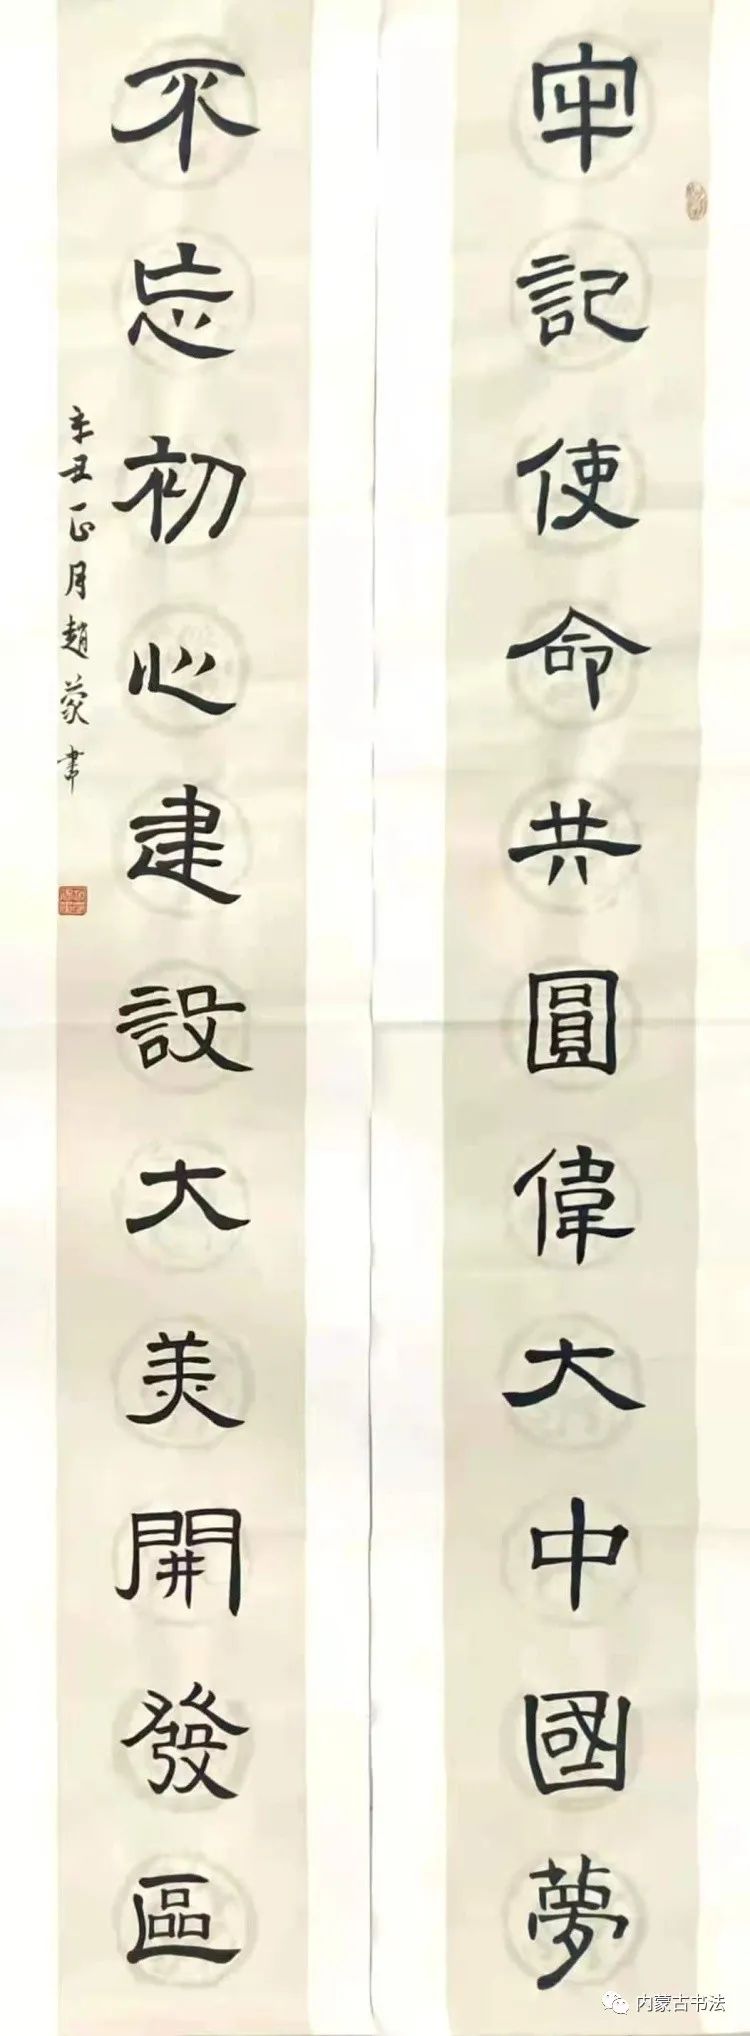 牢記使命共圓偉大中國夢
不忘初心建設大美開發區
辛丑正月趙葵書
内蒙古书法